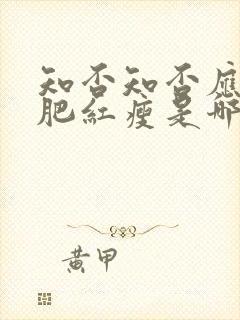 知否知否應
肥紅瘦是哪
黃甲